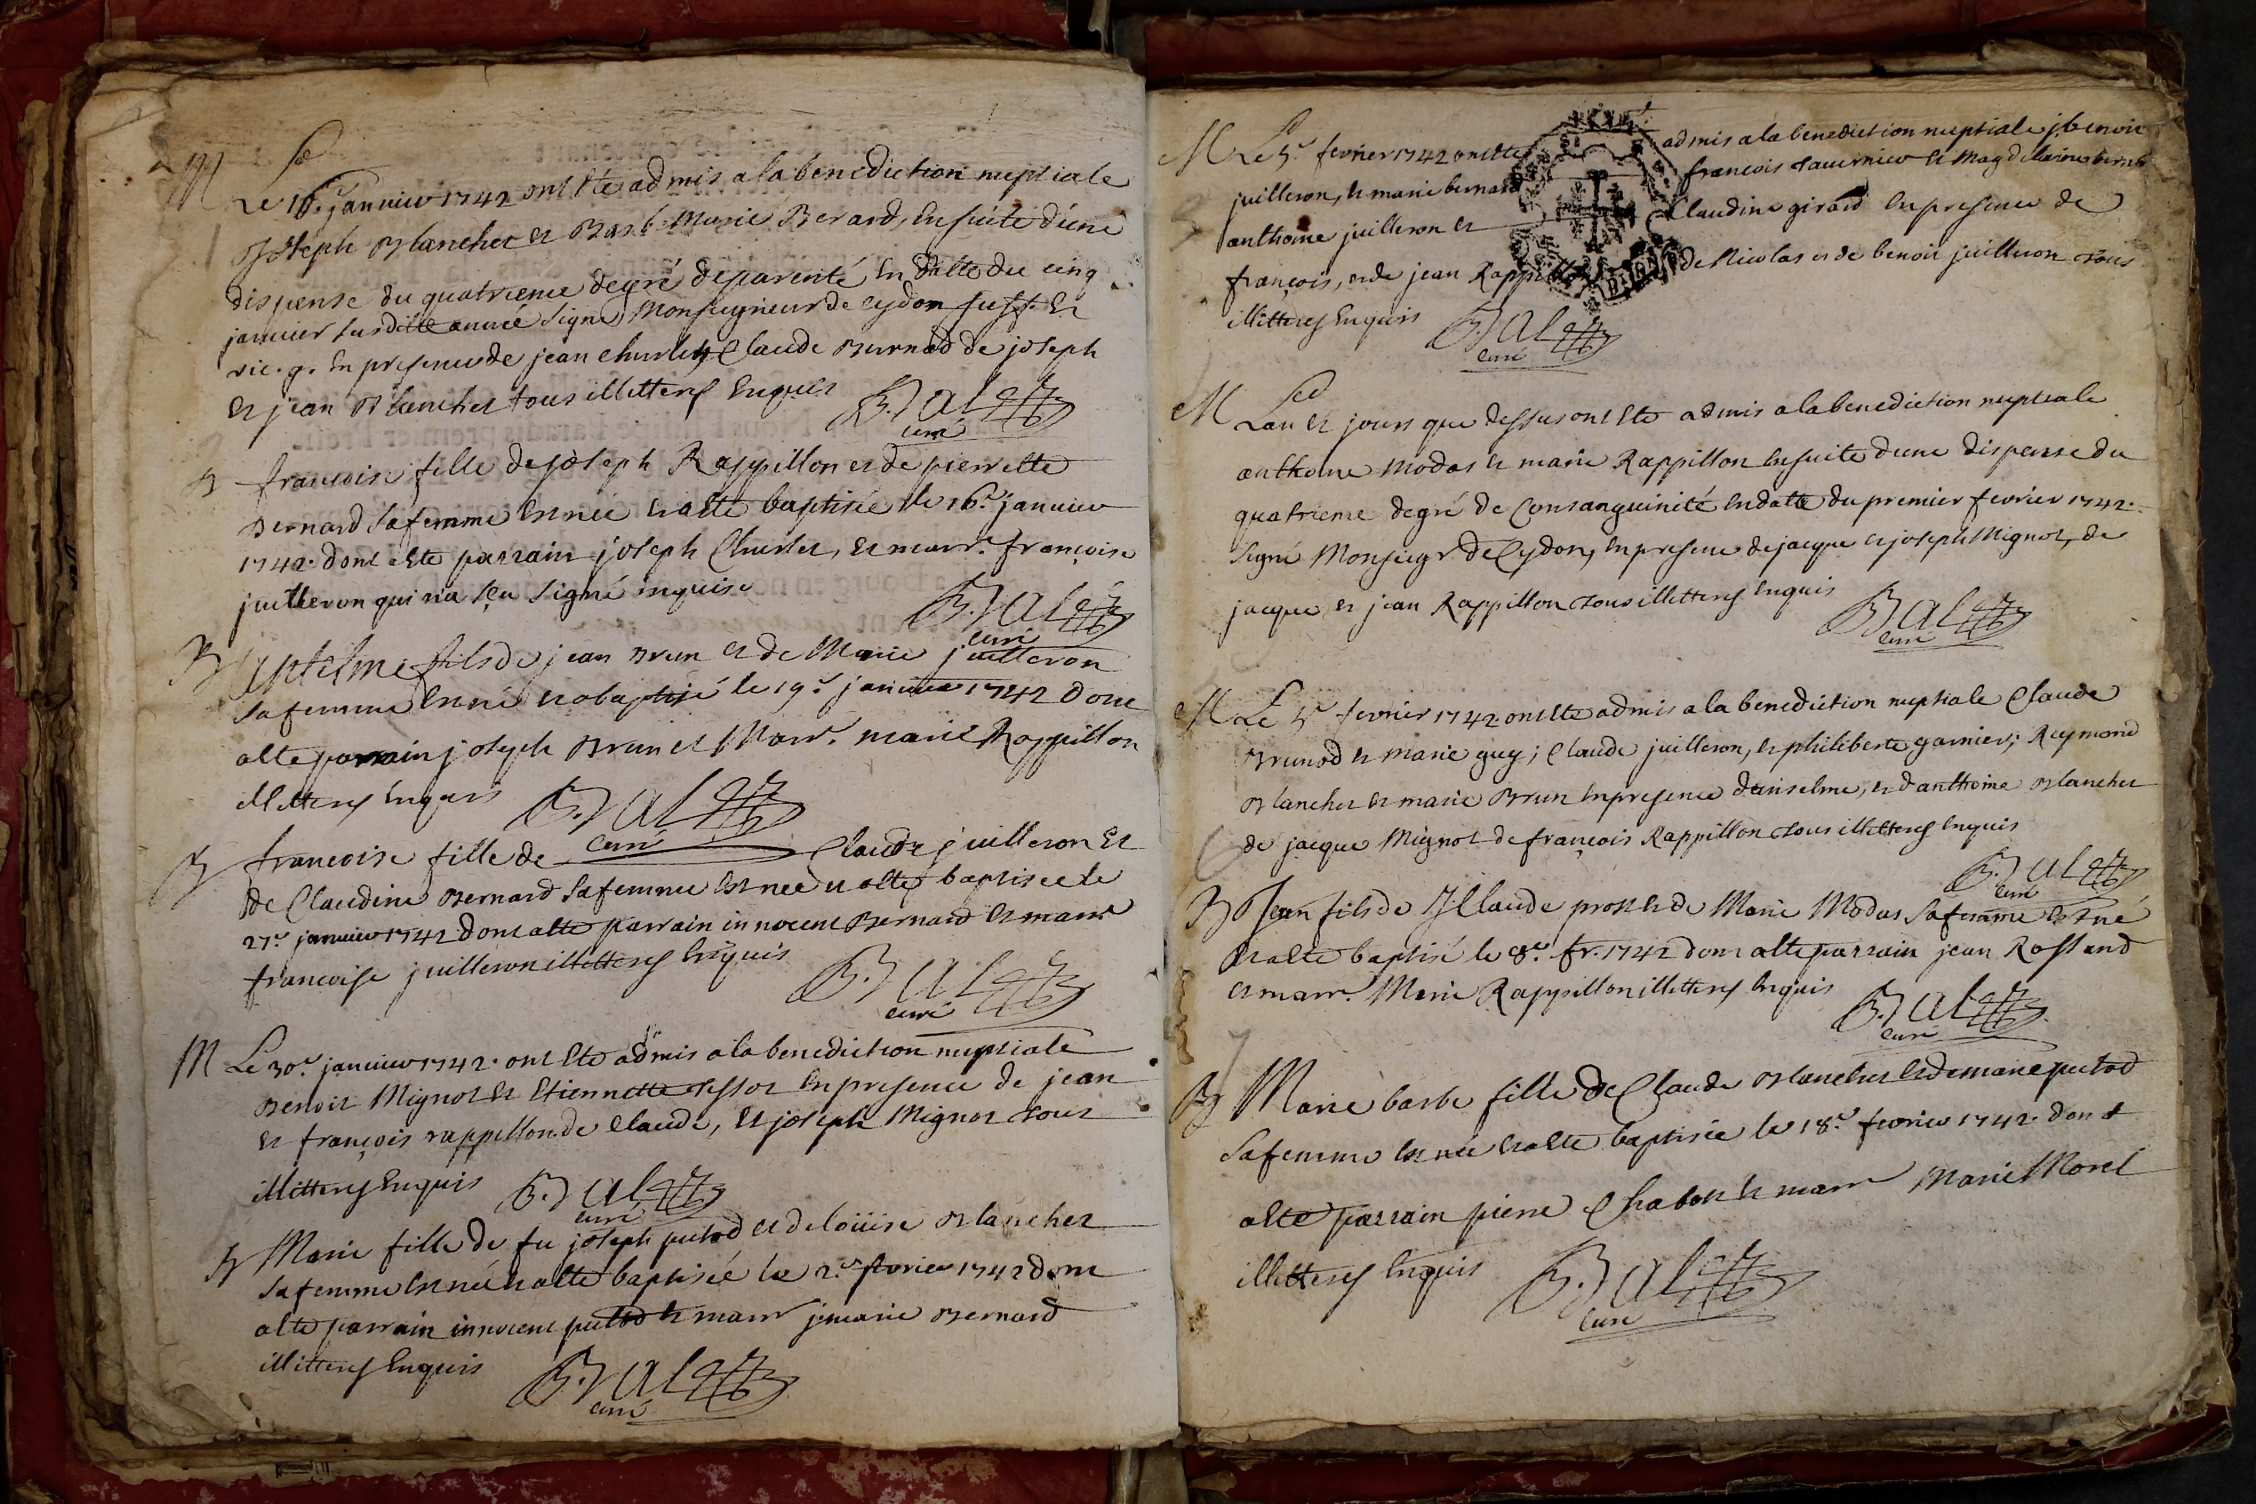 M Le 16e janvier 1742 ont été admis a la benediction nuptiale
Joseph Blanchet et Barb. Marie Berard, Ensuite d'une
dispense du quatrieme degré de parenté En datte du cinq
janvier susditte année Signé Monseigneur de Cydon suff. Et
vic. g. En presence de jean Churlet, Claude Burnod de joseph
et jean Blanchet tous illitterez Enquis
curé
B francoise fille de joseph Rappillon et de pierrette
Bernard Sa femme Est née et a eté baptisée le 16e janvier
1742. dont a ete parrain joseph Churlet, et marr. françoise
juilleron qui n'a sçu signé enquise
curé
B Anselme fils de jean Brun et de Marie juilleron
Sa femme Est né et a baptisé le 19e janvier 1742 dont
a ete parrain joseph Brun et Marr. marie Rappillon
illitterez Enquis
curé
B francoise fille de Claude juilleron Et
de Claudine Bernard Sa femme Est née et a eté baptisée le
27e janvier 1742 dont a ete parrain innocent Bernard et marr
francoise juilleron illitterez Enquis
curé
M Le 30e janvier 1742. ont Eté admis a la benediction nuptiale
Benoit Mignot et Etiennette Tessot En presence de jean
et françois rappillon de Claude, et joseph Mignot tous
illitterez Enquis
curé
B Marie fille de fu joseph putod et de loüise Blanchet
Sa femme Est née et a eté baptisée le 2e fevrier 1742 dont
a ete parrain innocent putod et marr j. marie Bernard
illitterez Enquis
curé
M Le 5e fevrier 1742 ont ete admis a la benediction nuptiale j. benoit
juilleron, et marie bernard francois Tavernier et Magdelaine
anthoine juilleron et Claudine girard En presence de
françois, et de jean de Nicolas et de benoit juilleron tous
illitterez Enquis
curé
M L'an et jours que dessus ont Eté admis a la benediction nuptiale
anthoine Modas et marie Rappillon Ensuite d'une dispense du
quatrieme degré de Consanguinité En datte du premier fevrier 1742.
Signé Monseigr de Cydon, En presence de jacque et joseph Mignot, de
jacque et jean Rappillon tous illitterez Enquis
curé
M Le 5e fevrier 1742 ont Ete admis a la benediction nuptiale Claude
Brunod et marie guy; Claude juilleron, et philiberte garnier; Reymond
Blanchet et marie Brun En presence d'anselme, et d'anthoine Blanchet
de jacque Mignot de françois Rappillon tous illitterez Enquis
curé
B Jean fils de Claude prost et de Marie Modas Sa femme Est né
Et a ete baptisé le 8e fr. 1742 dont a ete parrain jean Rossand
et marr. Marie Rappillon illitterez Enquis
curé
B Marie barbe fille de Claude Blanchet Et de marie putod
Sa femme Est née Et a ete baptisée le 18e fevrier 1742. dont
a ete parrain pierre Chabot et marr Marie Morel
illitterez Enquis
curé